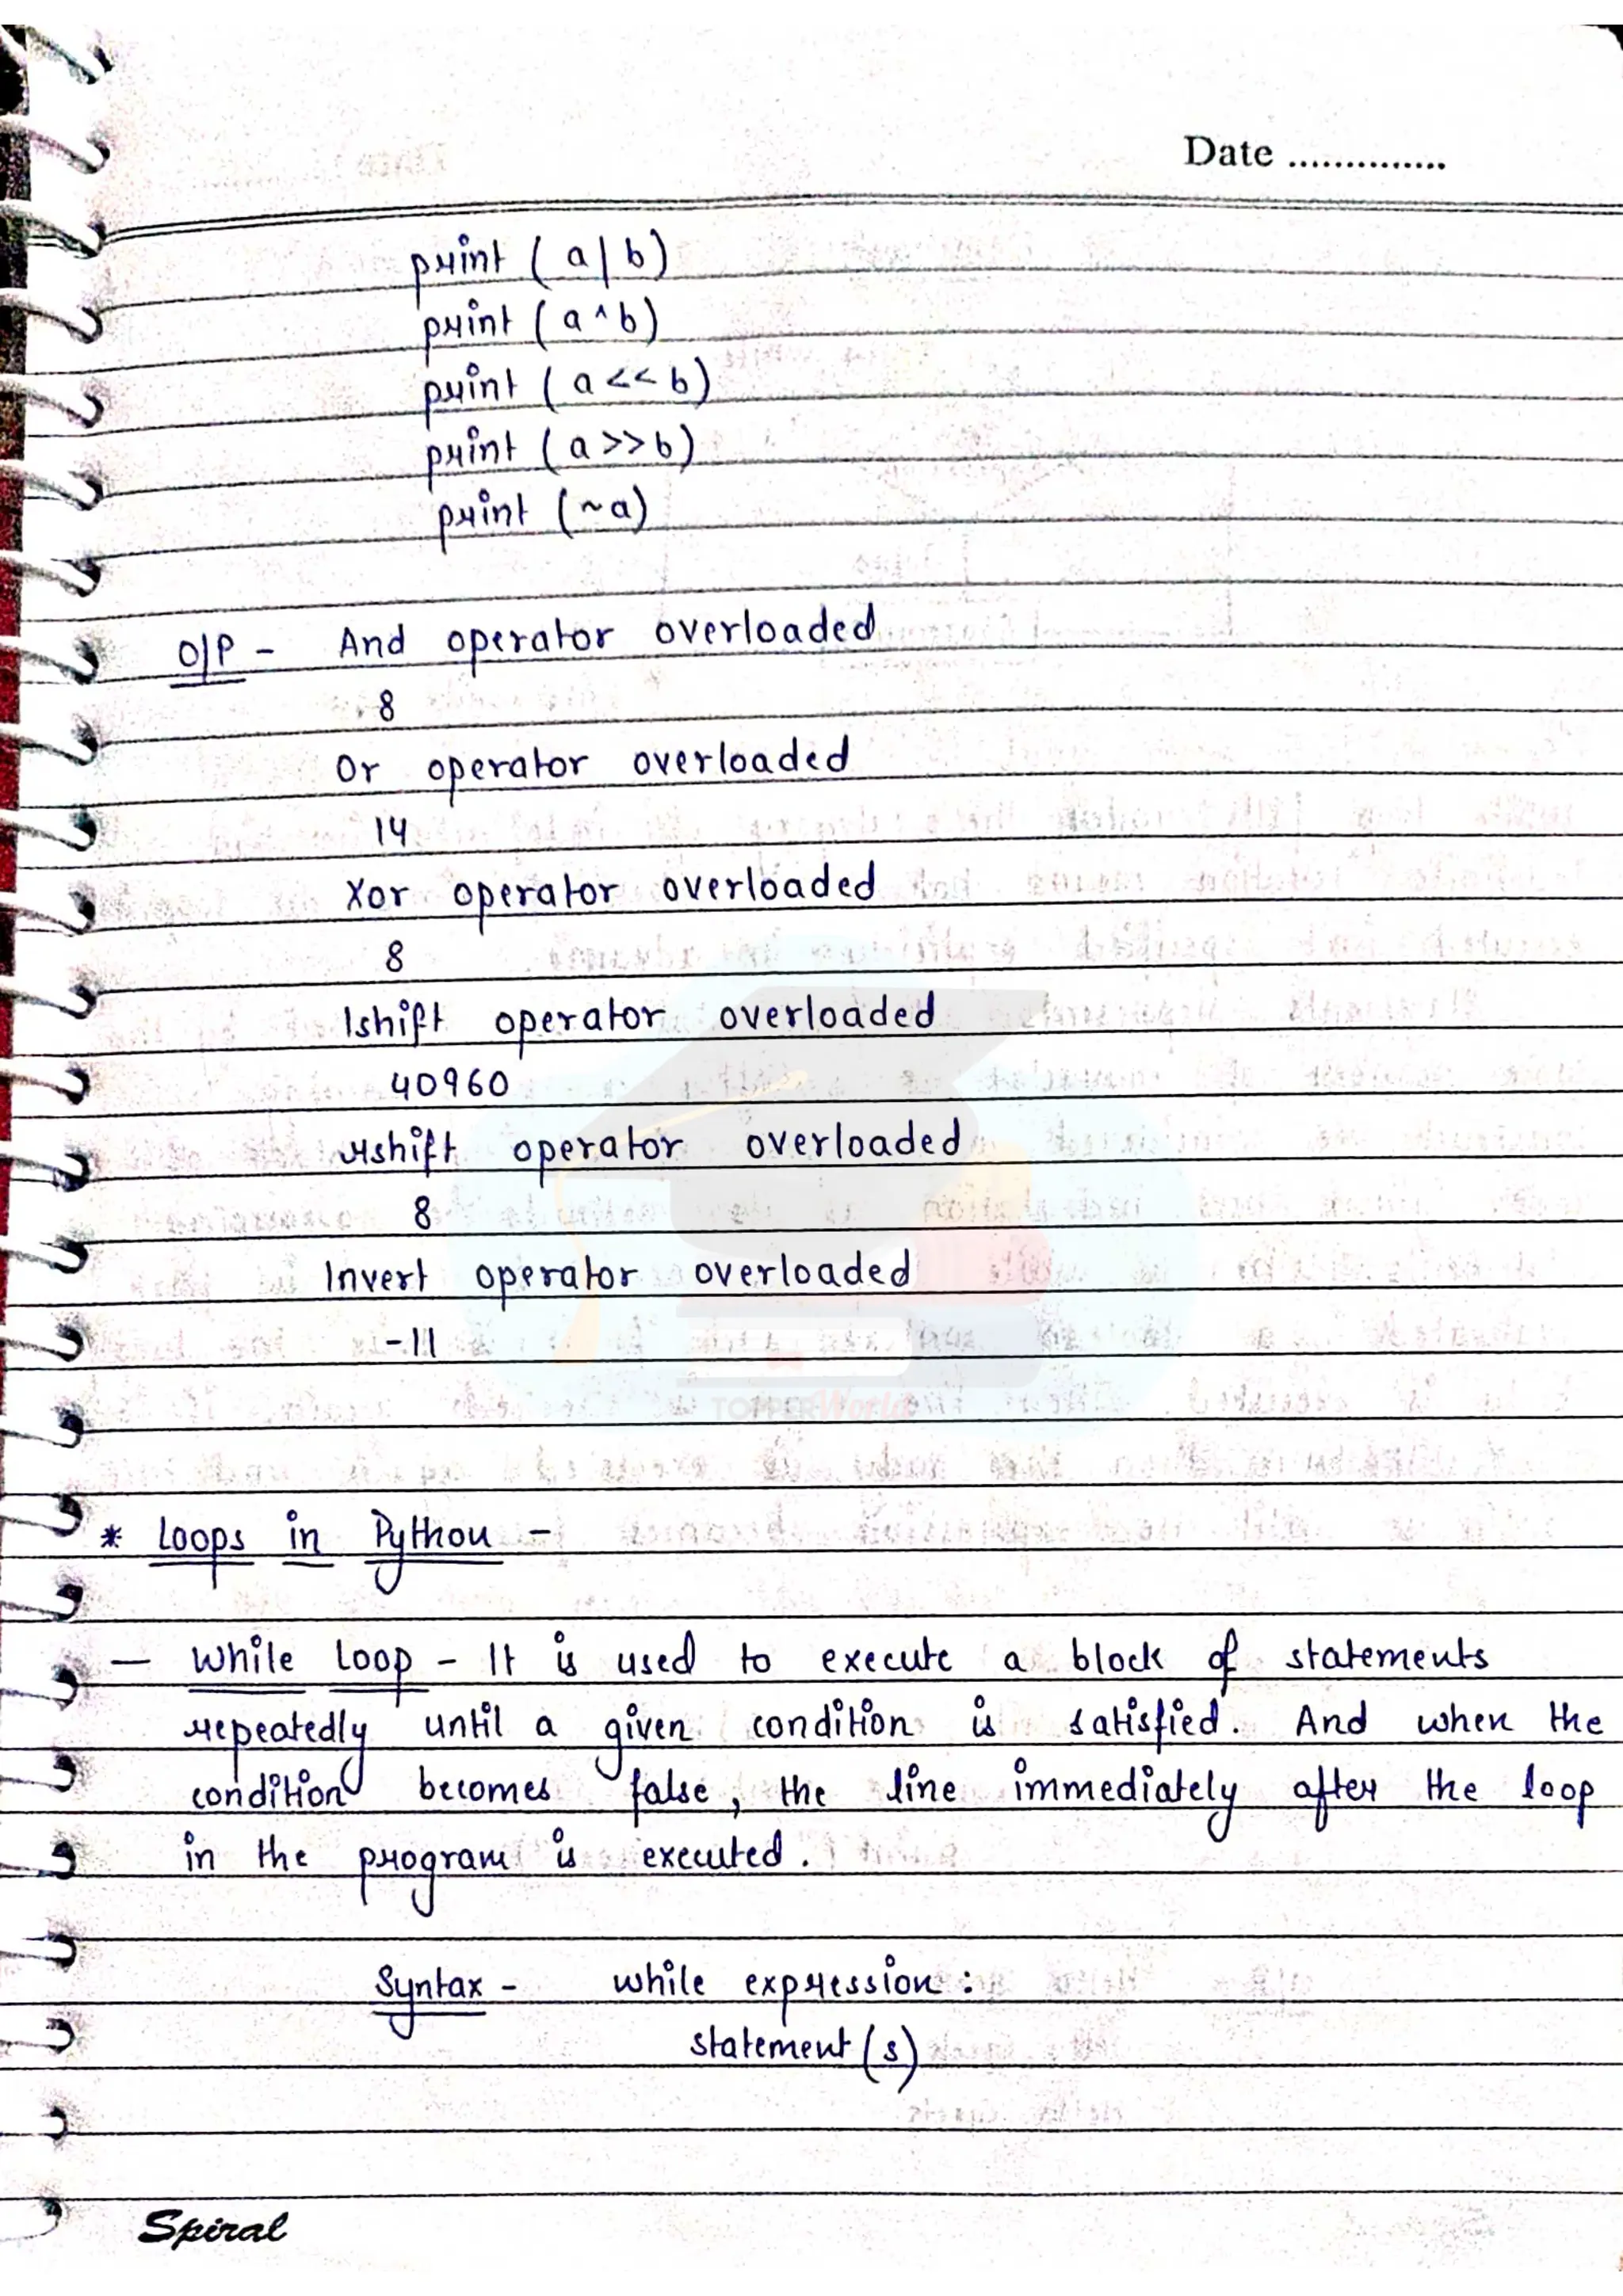 Date ..............
print ( a | b )
print ( a ^ b )
print ( a << b )
print ( a >> b )
print ( ~ a )
O/P - And operator overloaded
8
Or operator overloaded
14
Xor operator overloaded
8
lshift operator overloaded
40960
rshift operator overloaded
8
Invert operator overloaded
-11
* Loops in Python -
— While Loop - It is used to execute a block of statements
repeatedly until a given condition is satisfied. And when the
condition becomes false, the line immediately after the loop
in the program is executed.
Syntax - while expression :
statement (s)
TOPPERWorld
Spiral